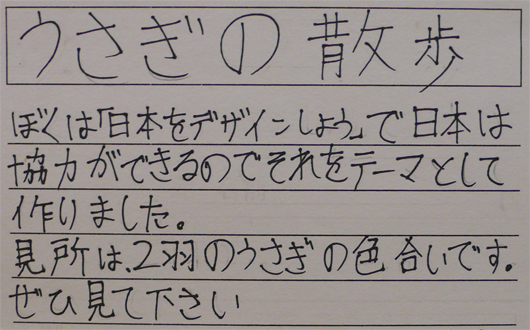 うさぎの散歩
ぼくは「日本をデザインしよう」で日本は
協力ができるのでそれをテーマとして
作りました。
見所は、2羽のうさぎの色合いです。
ぜひ見て下さい